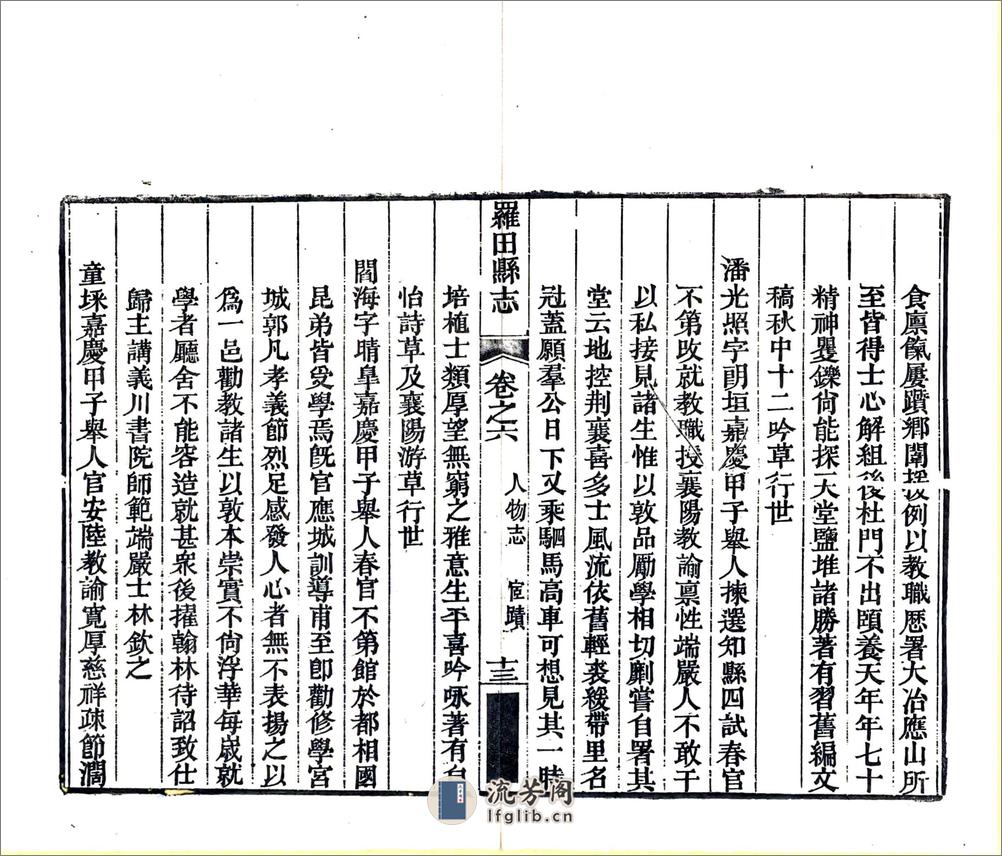 食廩餼屢躓鄉闈援例以教職歷署大冶應山所
至皆得士心解組後杜門不出頤養天年年七十
精神矍鑠尚能探天堂鹽堆諸勝著有習舊編文
稿秋中十二吟草行世
潘光照字朗垣嘉慶甲子舉人揀選知縣四試春官
不第改就教職授襄陽教諭稟性端嚴人不敢干
以私接見諸生惟以敦品勵學相切劘嘗自署其
堂云地控荆襄喜多士風流依舊輕裘緩帶里名
冠蓋願羣公日下又乘駟馬高車可想見其一時
羅田縣志 卷之六 人物志 宦蹟 十三
培植士類厚望無窮之雅意生平喜吟咏著有自
怡詩草及襄陽游草行世
閻海字晴皐嘉慶甲子舉人春官不第館於都相國
昆弟皆受學焉旣官應城訓導甫至卽勸修學宮
城郭凡孝義節烈足感發人心者無不表揚之以
爲一邑勸教諸生以敦本崇實不尙浮華每歲就
學者廳舍不能容造就甚衆後擢翰林待詔致仕
歸主講義川書院師範端嚴士林欽之
童埰嘉慶甲子舉人官安陸教諭寬厚慈祥疎節濶
流芳阁
lfglib.cn